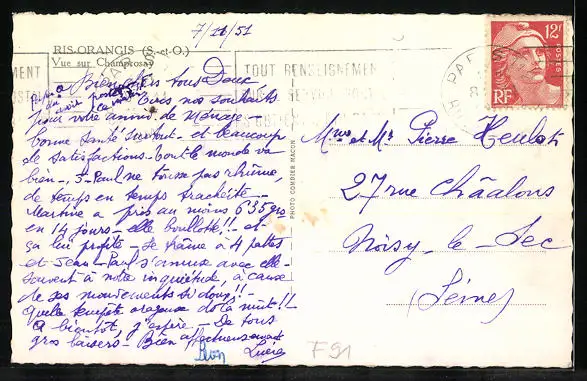 7/11/51
RIS-ORANGIS (S.-et-O.)
Vue sur Champrosay
TOUT RENSEIGNEMENT
12F
POSTES
RF
Bien chers tous Deux
Tous nos souhaits
pour votre anniv. de Mariage
bonne santé surtout - et beaucoup
de satisfactions. tout le monde va
bien -, J-Paul ne tousse pas rhume,
de temps en temps trachéite -
Martine a pris au moins 635 grs
en 14 jours - elle boullotte!! - et
ça lui profite - se traîne à 4 pattes
et Jean-Paul s'amuse avec elle -
souvent à notre inquiétude, à cause
de ses mouvements si doux!! -
Quelle tempête orageuse de la nuit!!
A bientôt, j'espère - De tous
gros baisers - Bien affectueusement
Léon
PHOTO COMBIER MACON
Mme et Mr Pierre Heulot
27 rue Châalons
Noisy-le-Sec
(Seine)
F91